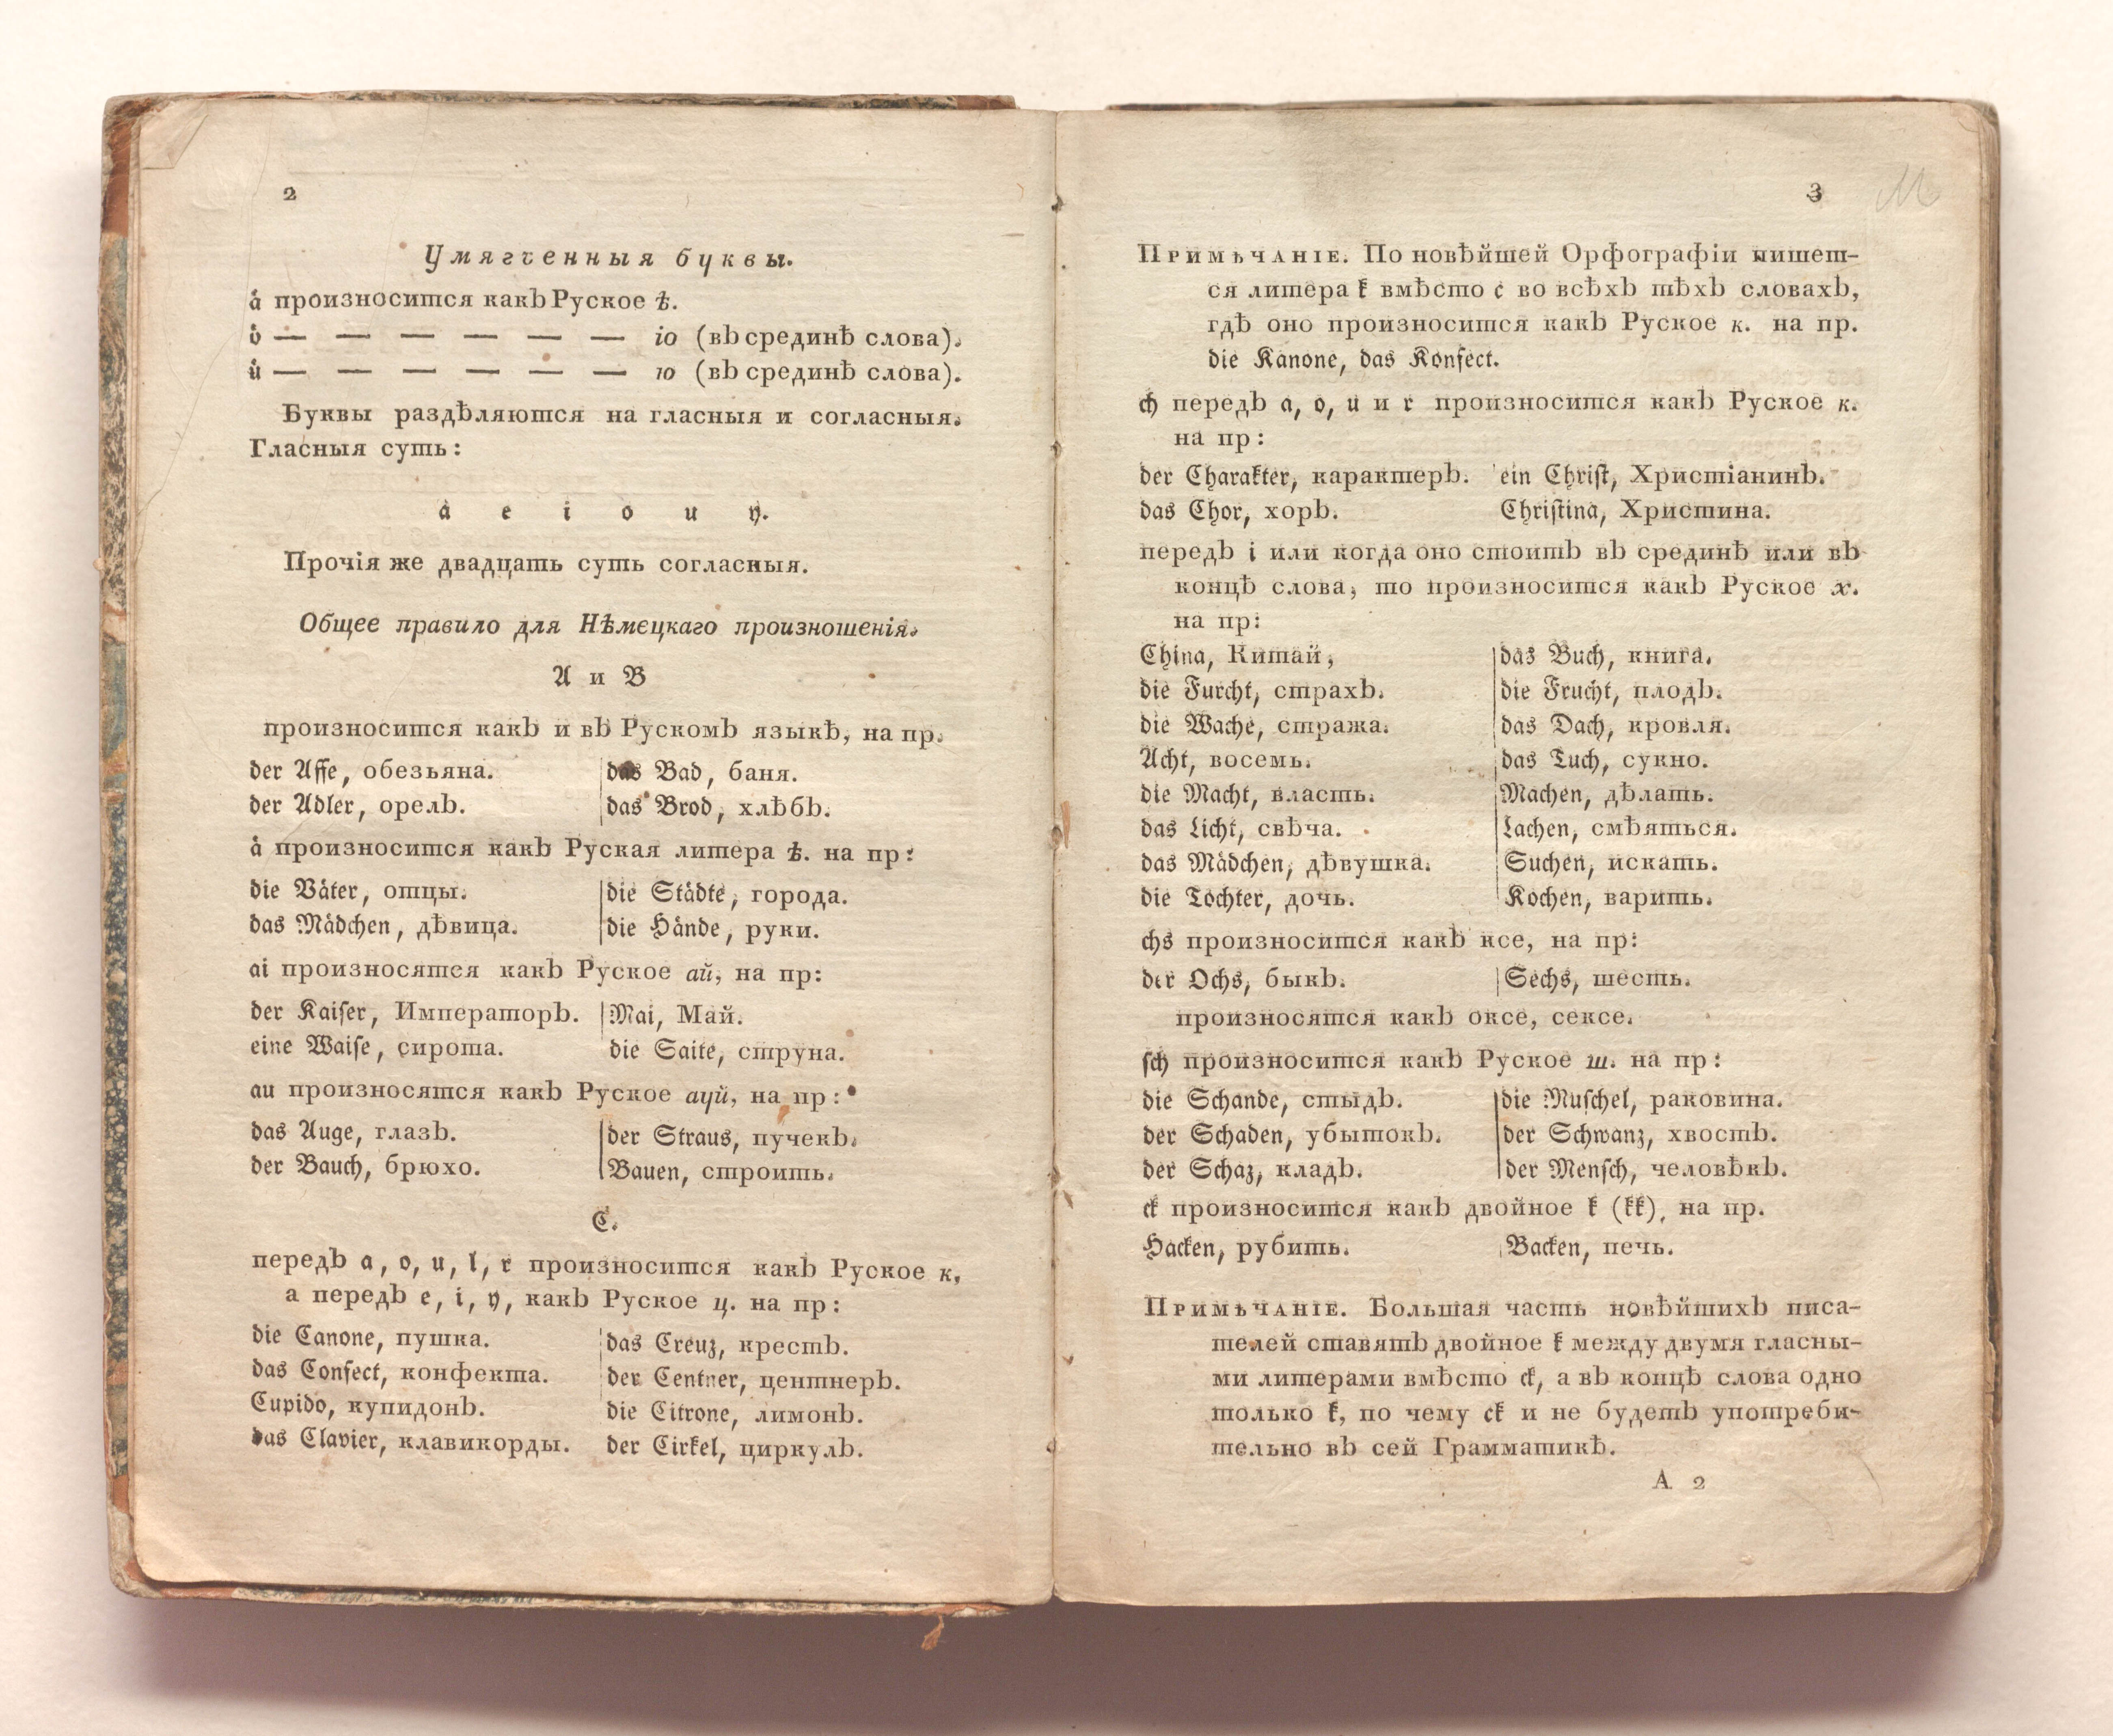 2
Умягченныя буквы.
aͤ произносится какъ Руское ѣ.
oͤ — — — — — — іо (въ срединѣ слова).
uͤ — — — — — — ю (въ срединѣ слова).
Буквы раздѣляются на гласныя и согласныя.
Гласныя суть:
a e i o u y.
Прочія же двадцать суть согласныя.
Общее правило для Нѣмецкаго произношенія.
A и B
произносится какъ и въ Рускомъ языкѣ, на пр.
der Affe, обезьяна. das Bad, баня.
der Adler, орелъ. das Brod, хлѣбъ.
aͤ произносится какъ Руская литера ѣ. на пр:
die Vaͤter, отцы. die Staͤdte, города.
das Maͤdchen, дѣвица. die Haͤnde, руки.
ai произносятся какъ Руское ай, на пр:
der Kaiſer, Императоръ. Mai, Май.
eine Waiſe, сирота. die Saite, струна.
au произносятся какъ Руское ауй, на пр:
das Auge, глазъ. der Straus, пучекъ.
der Bauch, брюхо. Bauen, строить.
C.
передъ a, o, u, l, r произносится какъ Руское к,
а передъ e, i, y, какъ Руское ц. на пр:
die Canone, пушка. das Creuz, крестъ.
das Confect, конфекта. der Centner, центнеръ.
Cupido, купидонъ. die Citrone, лимонъ.
das Clavier, клавикорды. der Cirkel, циркулъ.
3
Примѣчаніе. По новѣйшей Орфографіи пишет-
ся литера k вмѣсто c во всѣхъ тѣхъ словахъ,
гдѣ оно произносится какъ Руское к. на пр.
die Kanone, das Konfect.
ch передъ a, o, u и r произносится какъ Руское к.
на пр:
der Charakter, карактеръ. ein Chriſt, Христіанинъ.
das Chor, хоръ. Chriſtina, Христина.
передъ i или когда оно стоитъ въ срединѣ или въ
концѣ слова, то произносится какъ Руское х.
на пр:
China, Китай, das Buch, книга.
die Furcht, страхъ. die Frucht, плодъ.
die Wache, стража. das Dach, кровля.
Acht, восемь. das Tuch, сукно.
die Macht, власть. Machen, дѣлать.
das Licht, свѣча. Lachen, смѣяться.
das Maͤdchen, дѣвушка. Suchen, искать.
die Tochter, дочь. Kochen, варить.
chs произносится какъ ксе, на пр:
der Ochs, быкъ. Sechs, шесть.
произносятся какъ оксе, сексе.
ſch произносится какъ Руское ш. на пр:
die Schande, стыдъ. die Muſchel, раковина.
der Schaden, убытокъ. der Schwanz, хвостъ.
der Schaz, кладъ. der Menſch, человѣкъ.
ck произносится какъ двойное k (kk), на пр.
Hacken, рубить. Backen, печь.
Примѣчаніе. Большая часть новѣйшихъ писа-
телей ставятъ двойное k между двумя гласны-
ми литерами вмѣсто ck, а въ концѣ слова одно
только k, по чему ck и не будетъ употреби-
тельно въ сей Грамматикѣ.
А 2